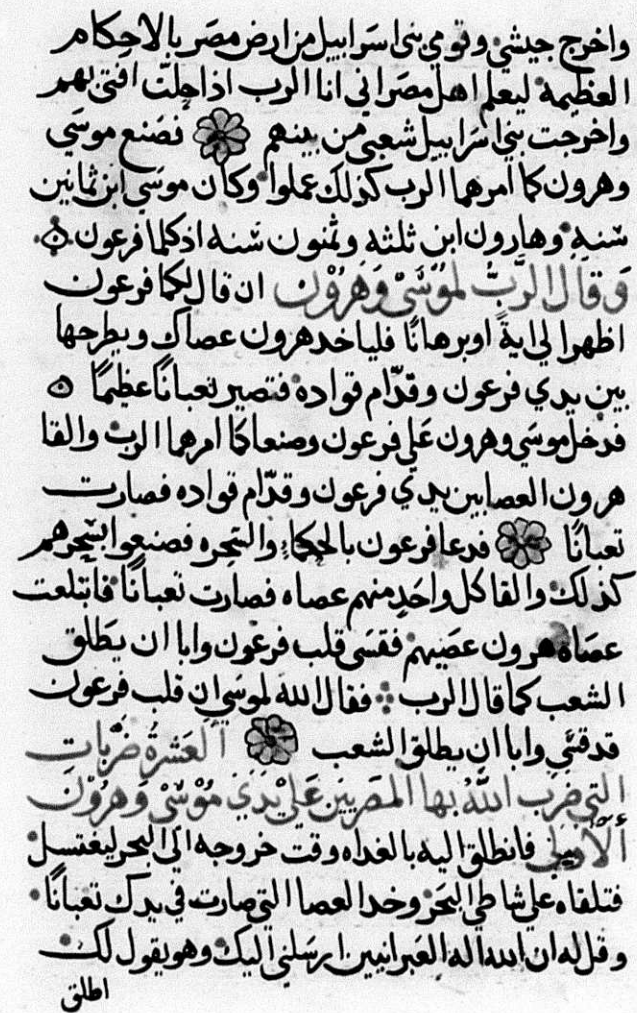 واخرج جيشي وقومي بني اسرابيل من ارض مصر بالاحكام
العظيمة ليعلم اهل مصر اني انا الرب اذا حلت افتي بهم
واخرجت بني اسرابيل شعبي من بينهم فصنع موسي
وهرون كما امرهما الرب كذلك عملوا وكان موسي ابن ثمانين
سنه وهارون ابن ثلثه وثمنون سنه اذ كلما فرعون
وقال الرب لموسي وهرون ان قال لكما فرعون
اظهرا لي اية او برهانا فلياخد هرون عصاك ويطرحها
بين يدي فرعون وقدام قواده فتصير تعبانا عظيما
فدخل موسي وهرون علي فرعون وصنعا كما امرهما الرب والقا
هرون العصا بين يدي فرعون وقدام قواده فصارت
تعبانا فدعا فرعون بالحكماء والسحره فصنعوا بسحرهم
كذلك والقا كل واحد منهم عصاه فصارت تعبانا فابتلعت
عصاة هرون عصيهم فقسي قلب فرعون وابا ان يطلق
الشعب كما قال الرب فقال الله لموسي ان قلب فرعون
قد قسي وابا ان يطلق الشعب العشرة ضربات
التي ضرب الله بها المصريين علي يدي موسي وهرون
الاولي فانطلق اليه بالغداه وقت خروجه الي البحر ليغتسل
فتلقاه علي شاطي البحر وخد العصا التي صارت في يدك تعبانا
وقل له ان الله اله العبرانيين ارسلني اليك وهو يقول لك
اطلق